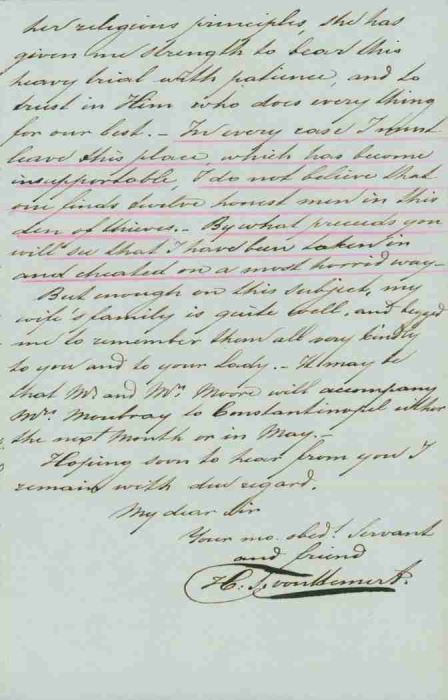 her religious principles, she has
given me strength to bear this
heavy trial with patience, and to
trust in Him who does every thing
for our best. – In every case I must
leave this place, which has become
insupportable, I do not believe that
one finds twelve honest men in this
den of thieves. – By what preceeds you
will see that I have been taken in
and cheated on a most horrid way –
But enough on this subject, my
wife's family is quite well, and begged
me to remember them all very kindly
to you and to your Lady. – It may be
that Mr. and Mrs. Moore will accompany
Mrs. Moubray to Constantinopel either
the next Month or in May. –
Hoping soon to hear from you I
remain with due regard.
My dear Sir
Your mo. obedt. Servant
and friend
H. S. van Hemert.